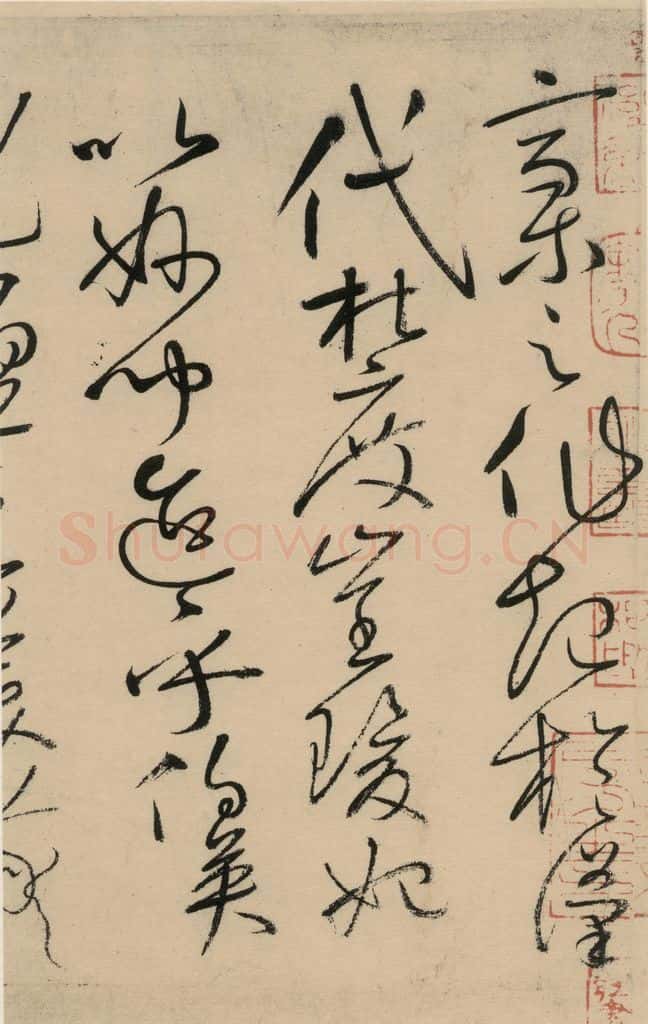 槀之作起於漢
代杜度崔瑗始
以妙聞迨乎伯英
Shufawang.CN